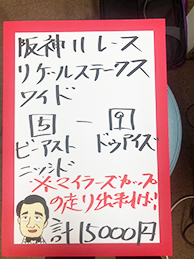 阪神11レース
リゲールステークス
ワイド
5 - 9
ビーアスト ドゥアイズ
ニッシド
※マイラーズカップ
の走り出来れば!
計15000円